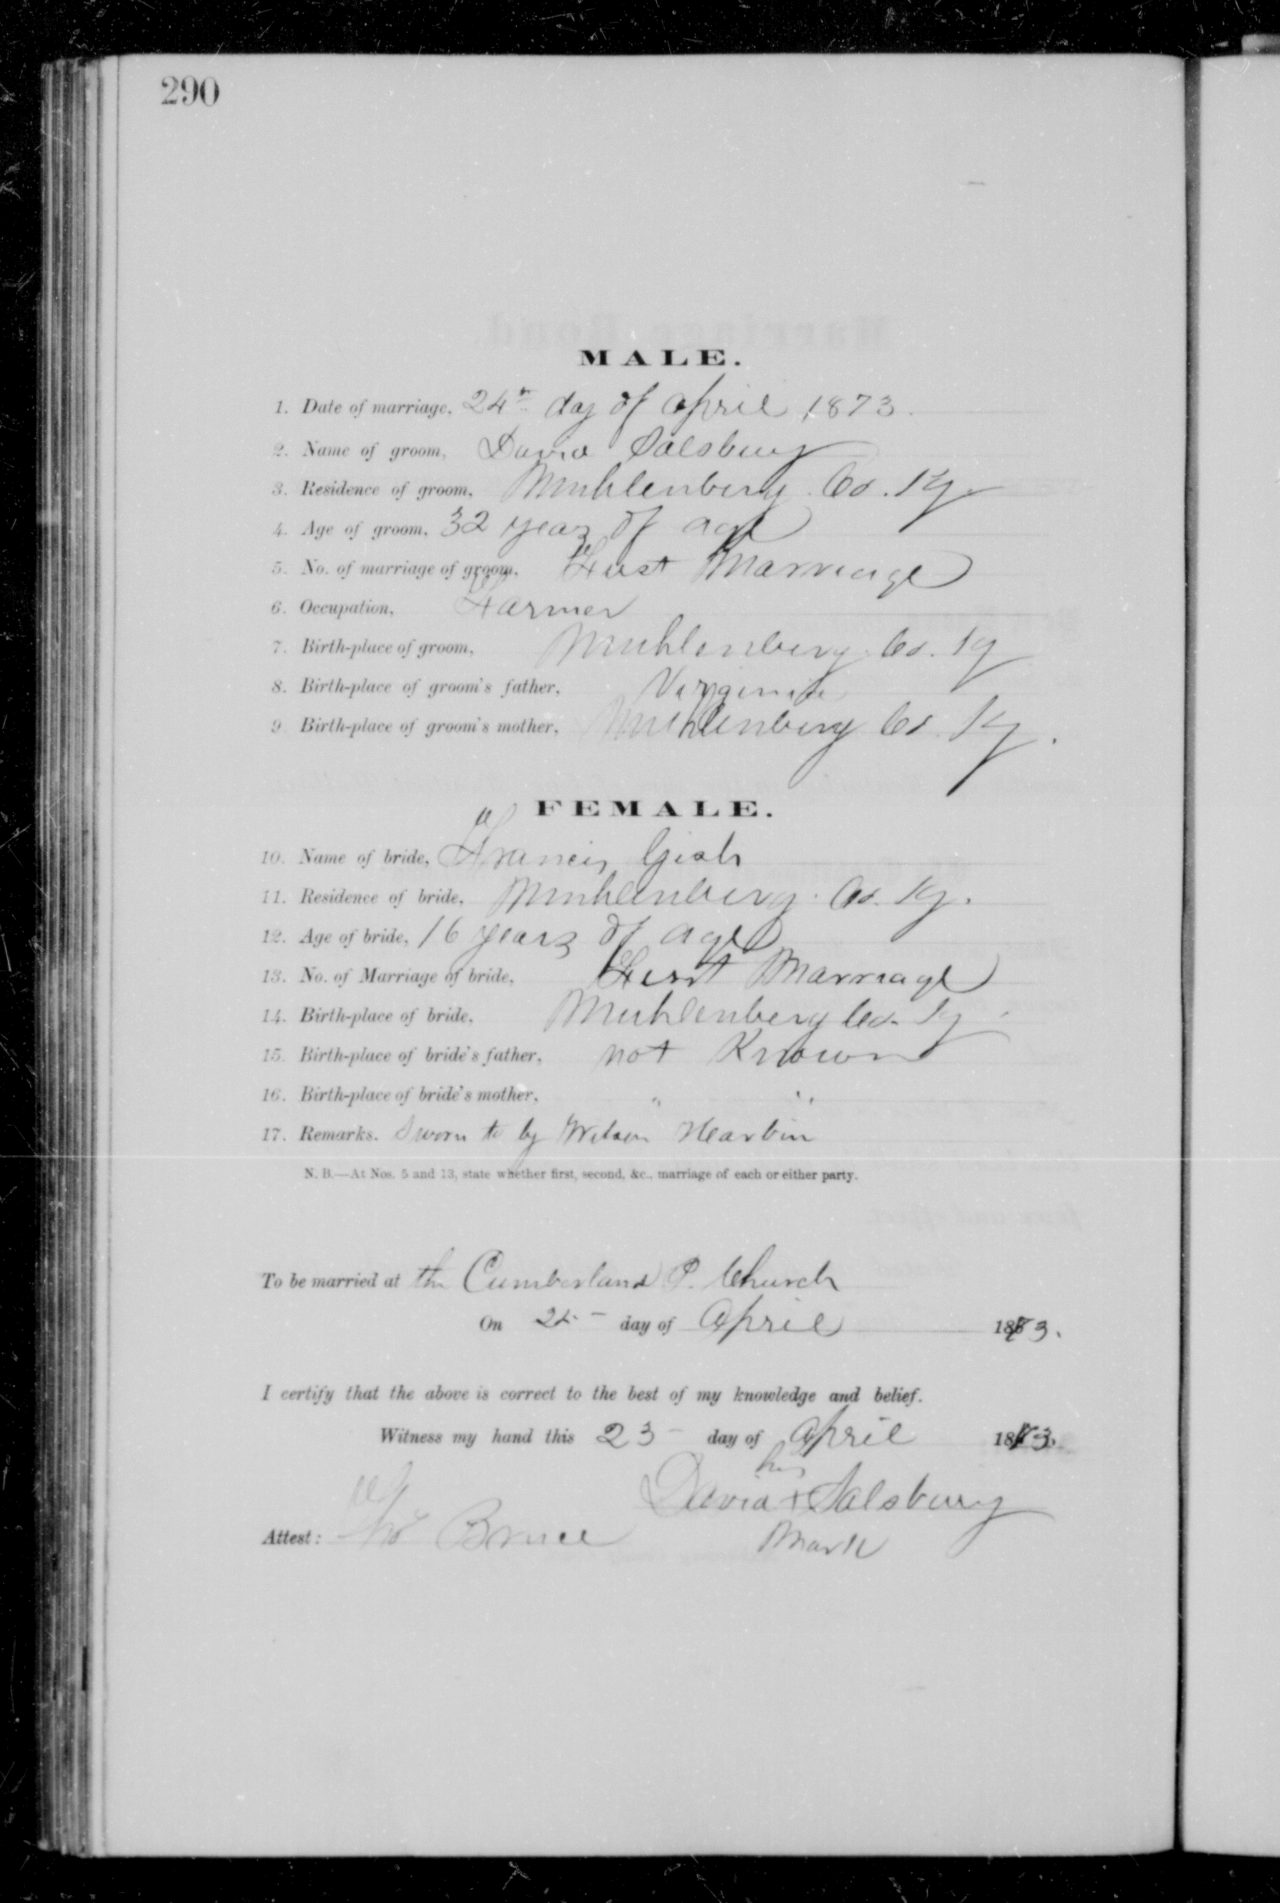 290
MALE.
1. Date of marriage, 24th day of April 1873.
2. Name of groom, David Salsbury
3. Residence of groom, Muhlenberg Co. Ky.
4. Age of groom, 32 years of age
5. No. of marriage of groom, First Marriage
6. Occupation, Farmer
7. Birth-place of groom, Muhlenberg Co. Ky
8. Birth-place of groom's father, Virginia
9. Birth-place of groom's mother, Muhlenberg Co. Ky.
FEMALE.
10. Name of bride, Francis Gish
11. Residence of bride, Muhlenberg Co. Ky.
12. Age of bride, 16 years of age
13. No. of Marriage of bride, First Marriage
14. Birth-place of bride, Muhlenberg Co. Ky
15. Birth-place of bride's father, not Known
16. Birth-place of bride's mother, " "
17. Remarks. Sworn to by Wilson Hearbin
N. B.—At Nos. 5 and 13, state whether first, second, &c., marriage of each or either party.
To be married at the Cumberland P. Church
On day of April 1873.
I certify that the above is correct to the best of my knowledge and belief.
Witness my hand this 23 day of April 1873.
his
David + Salsbury
Attest: Bruce mark